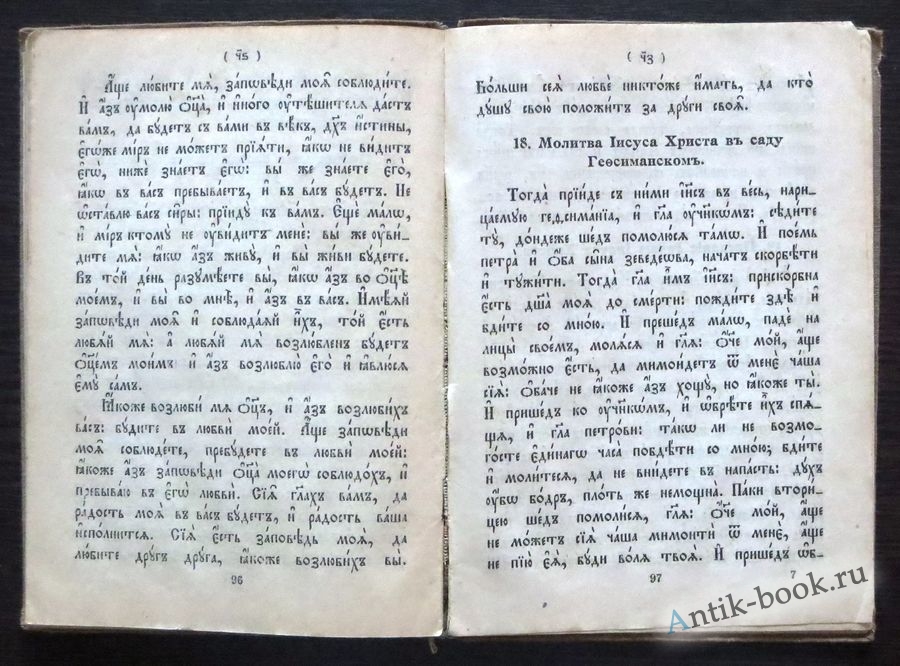 ( ч҃ѕ )
А҆́ще лю́бите мѧ̀, за́пѡвѣди моѧ̑ соблюди́те.
И҆ а҆́зъ ᲂу҆молю̀ ѻ҆ц҃а̀, и҆ и҆но́го ᲂу҆тѣ́шителѧ да́стъ
ва́мъ, да бꙋ́детъ съ ва́ми въ вѣ́къ, дх҃ъ и҆́стины,
є҆гѡ́же мі́ръ не мо́жетъ прїѧ́ти, ꙗ҆́кѡ не ви́дитъ
є҆гѡ̀, нижѐ зна́етъ є҆гѡ̀: вы́ же зна́ете є҆го̀,
ꙗ҆́кѡ въ ва́съ пребыва́етъ, и҆ въ ва́съ бꙋ́детъ. Не
ѡ҆ста́влю ва́съ си̑ры: прїидꙋ̀ къ ва́мъ. Є҆щѐ ма́лѡ,
и҆ мі́ръ ктомꙋ̀ не ᲂу҆ви́дитъ менѐ: вы́ же ᲂу҆ви́-
дите мѧ̀: ꙗ҆́кѡ а҆́зъ живꙋ̀, и҆ вы̀ жи́ви бꙋ́дете.
Въ то́й де́нь разꙋмѣ́ете вы̀, ꙗ҆́кѡ а҆́зъ во ѻ҆ц҃ѣ̀
мое́мъ, и҆ вы̀ во мнѣ̀, и҆ а҆́зъ въ ва́съ. И҆мѣ́ѧй
за́пѡвѣди моѧ̑ и҆ соблюда́ѧй и҆̀хъ, то́й є҆́сть
любѧ́й мѧ̀: а҆ любѧ́й мѧ̀ возлю́бленъ бꙋ́детъ
ѻ҆ц҃е́мъ мои́мъ: и҆ а҆́зъ возлюблю̀ є҆го̀ и҆ ꙗ҆влю́сѧ
є҆мꙋ̀ са́мъ.
Ꙗ҆́коже возлюби́ мѧ ѻ҆ц҃ъ, и҆ а҆́зъ возлюби́хъ
ва́съ: бꙋ́дите въ любвѝ мое́й. А҆́ще за́пѡвѣди
моѧ̑ соблюде́те, пребꙋ́дете въ любвѝ мое́й:
ꙗ҆́коже а҆́зъ за́пѡвѣди ѻ҆ц҃а̀ моегѡ̀ соблюдо́хъ, и҆
пребыва́ю въ є҆гѡ̀ любвѝ. Сїѧ̑ гл҃ахъ ва́мъ, да
ра́дость моѧ̀ въ ва́съ бꙋ́детъ, и҆ ра́дость ва́ша
и҆спо́лнитсѧ. Сїѧ̀ є҆́сть за́повѣдь моѧ̀, да
лю́бите дрꙋ́гъ дрꙋ́га, ꙗ҆́коже возлюби́хъ вы̀.
96
( ч҃з )
Бо́льши сеѧ̀ любвѐ никто́же и҆́мать, да кто̀
дꙋ́шꙋ свою̀ положи́тъ за дрꙋ́ги своѧ̑.
18. Молитва Іисуса Христа въ саду
Геѳсиманскомъ.
Тогда̀ прїи́де съ ни́ми і҆и҃съ въ ве́сь, нари-
ца́емꙋю геѳсима́нїа, и҆ гл҃а ᲂу҆ч҃нкѡ́мъ: сѣди́те
тꙋ̀, до́ндеже ше́дъ помолю́сѧ та́мѡ. И҆ пое́мь
петра̀ и҆ ѻ҆́ба сы̑на зеведе́ѡва, нача́тъ скорбѣ́ти
и҆ тꙋжи́ти. Тогда̀ гл҃а и҆̀мъ і҆и҃съ: приско́рбна
є҆́сть дш҃а̀ моѧ̀ до сме́рти: пожди́те здѣ̀ и҆
бди́те со мно́ю. И҆ преше́дъ ма́лѡ, падѐ на
лицы̀ свое́мъ, молѧ́сѧ и҆ гл҃ѧ: ѻ҆́ч҃е мо́й, а҆́ще
возмо́жно є҆́сть, да мимои́детъ ѿ менє̀ ча́ша
сїѧ̀: ѻ҆ба́че не ꙗ҆́коже а҆́зъ хощꙋ̀, но ꙗ҆́коже ты̀.
И҆ прише́дъ ко ᲂу҆ч҃нкѡ́мъ, и҆ ѡ҆брѣ́те и҆̀хъ спѧ́-
щѧ, и҆ гл҃а петро́ви: та́кѡ ли не возмо-
го́сте є҆ди́нагѡ часа̀ побдѣ́ти со мно́ю; бди́те
и҆ моли́тесѧ, да не вни́дете въ напа́сть: дꙋ́хъ
ᲂу҆́бѡ бо́дръ, пло́ть же немощна̀. Па́ки втори́-
цею ше́дъ помоли́сѧ, гл҃ѧ: ѻ҆́ч҃е мо́й, а҆́ще
не мо́жетъ сїѧ̀ ча́ша мимоитѝ ѿ менє̀, а҆́ще
не пїю̀ є҆ѧ̀, бꙋ́ди во́лѧ твоѧ̀. И҆ прише́дъ ѡ҆б-
97 7
Antik-book.ru